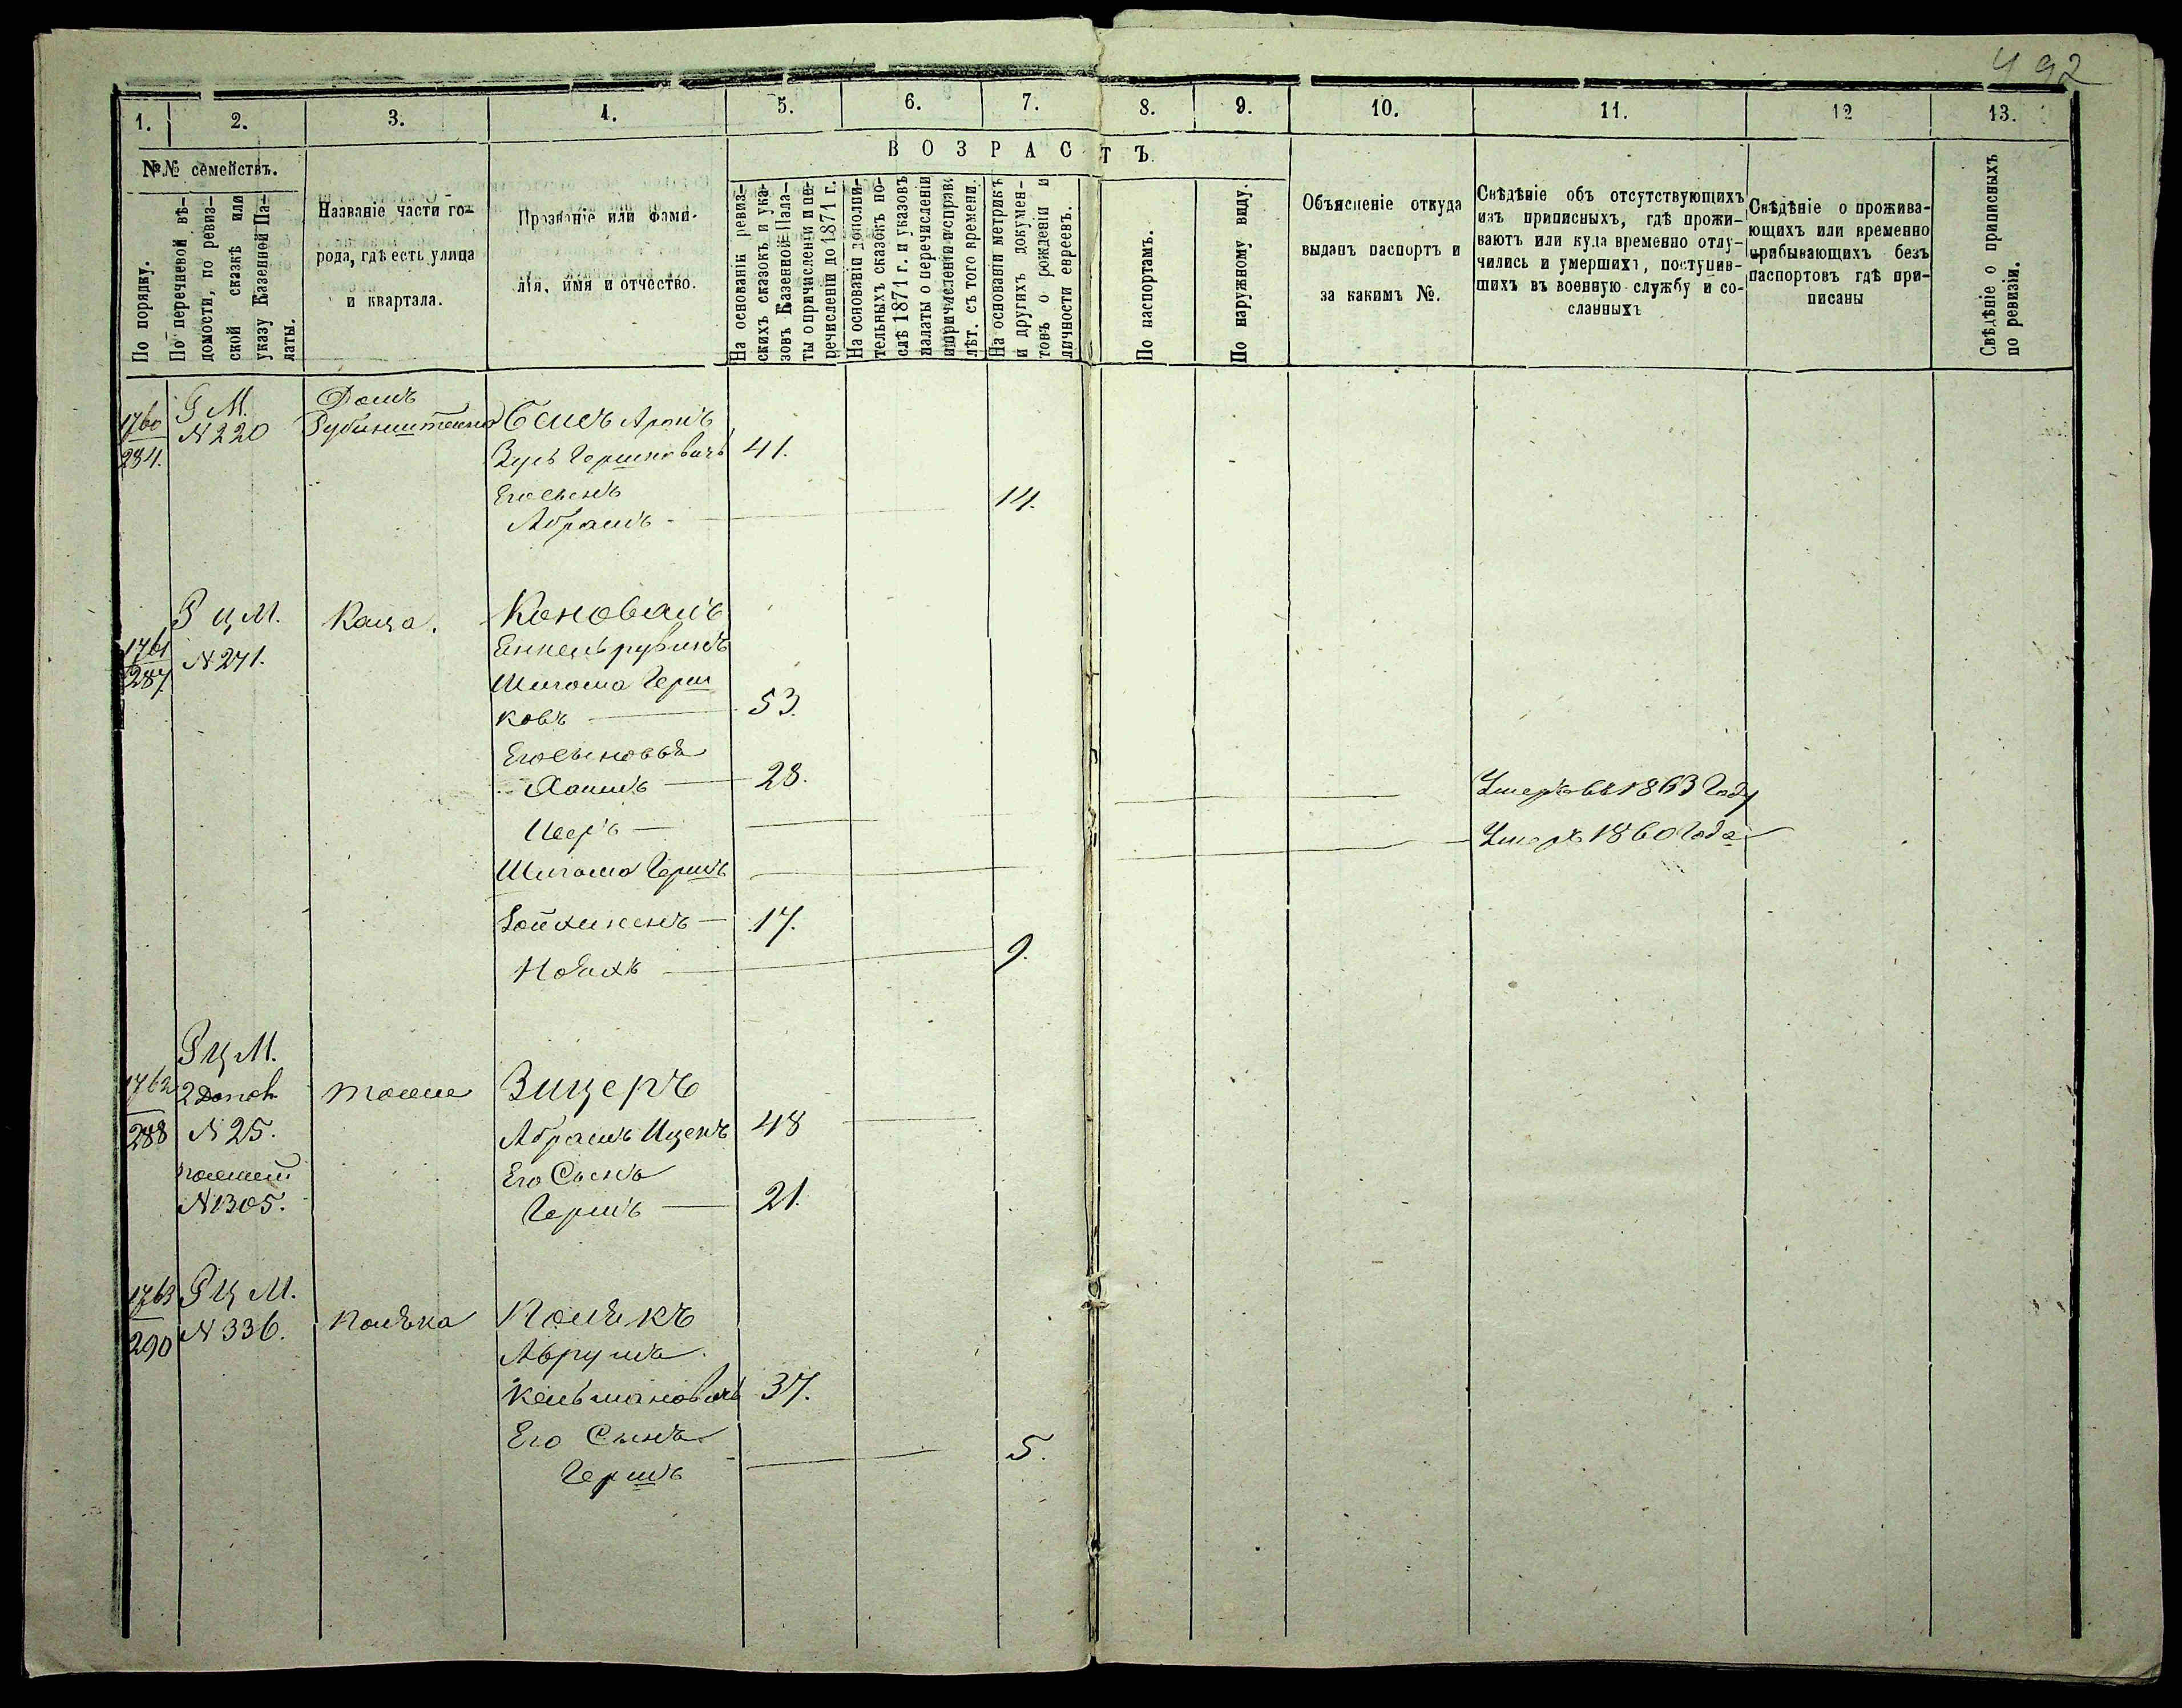 492
1. 2. 3. 4. 5. 6. 7. 8. 9. 10. 11. 12 13.
№№ семействъ.
ВОЗРАСТЪ.
По порядку.
По перечневой вѣ-
домости, по ревиз-
ской сказкѣ или
указу Казенной Па-
латы.
Названіе части го-
рода, гдѣ есть улица
и квартала.
Прозваніе или Фами-
лія, имя и отчество.
На основаніи ревиз-
скихъ сказокъ и ука-
зовъ Казенной Пала-
ты о причисленіи и пе-
речисленіи до 1871 г.
На основаніи дополни-
тельныхъ сказокъ по-
слѣ 1871 г. и указовъ
палаты о перечисленіи
и причисленіи исправ.
лѣт. съ того времени.
На основаніи метрикъ
и другихъ докумен-
товъ о рожденіи и
личности евреевъ.
По паспортамъ.
По наружному виду.
Объясненіе откуда
выданъ паспортъ и
за какимъ №.
Свѣдѣніе объ отсутствующихъ
изъ приписныхъ, гдѣ прожи-
ваютъ или куда временно отлу-
чились и умершихъ, поступив-
шихъ въ военную службу и со-
сланныхъ
Свѣдѣніе о прожива-
ющихъ или временно
прибывающихъ безъ
паспортовъ гдѣ при-
писаны
Свѣдѣніе о приписныхъ
по ревизіи.
1760
284.
М.
N 220
Домъ
Рубинштейна
Аронъ
Гершковичъ 41.
Его сынъ
Абрамъ 14.
1761
287.
Р ц М.
N 271.
Каца.
Коновалъ
Шлiома Герш
ковъ 53.
Его сыновья
Хаимъ 28. Умеръ въ 1863 Году
Умеръ 1860 Года
Шлiома Гершъ
17.
9.
1762
288
Р Ц М.
2 Допол
N 25.
N 1305.
тоже
Зицеръ
Абрамъ Ицекъ 48
Его Сынъ
Гершъ 21.
1763
290
Р Ц М.
N 336.
Полѣка
Полѣкъ
Аврумъ
Кельмановичъ 37.
Его Сынъ
Гершъ 5.